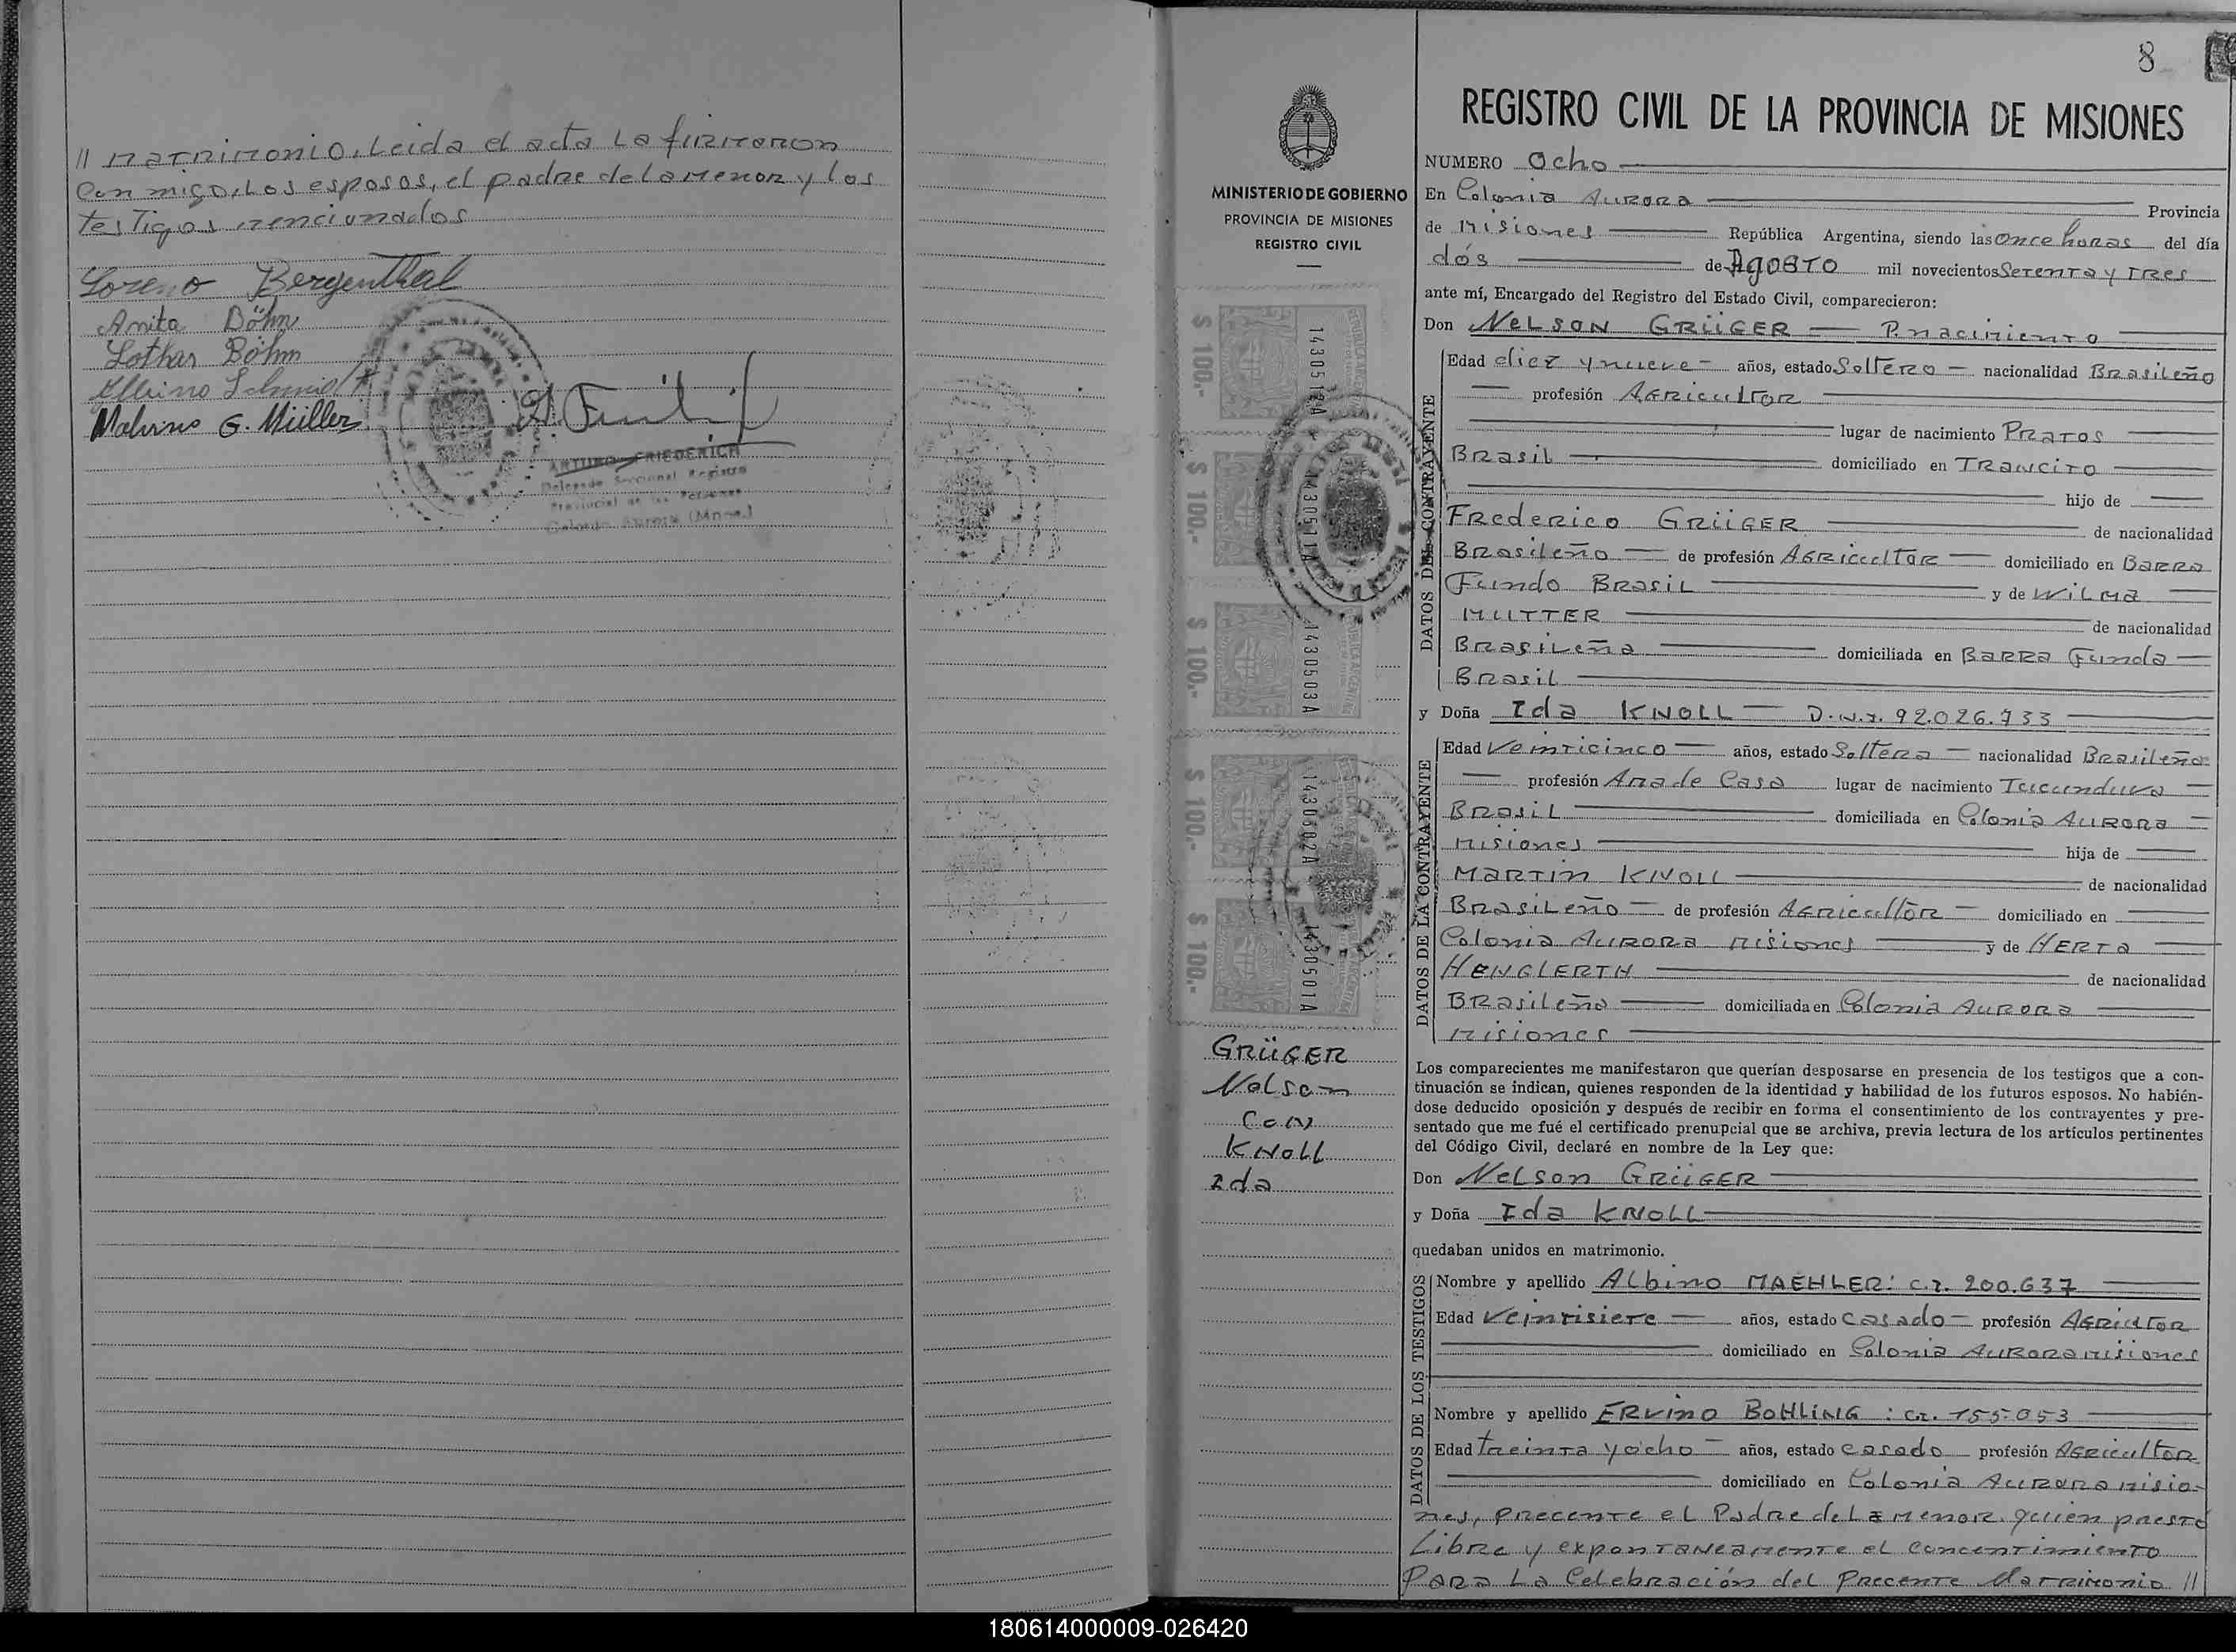 // Matrimonio, Leida el acta La firmaron
Con migo, Los esposos, el padre de la Menor y los
Testigos mencionados
Loreno Bergenthal
Anita Böhm
Lothar Böhm
Albino Schmidt
Malvino G. Müller
ARTURO FRIEDERICH
Delegado Seccional Registro
Provincial de las Personas
Colonia Aurora (Mnes.)
8
MINISTERIO DE GOBIERNO
PROVINCIA DE MISIONES
REGISTRO CIVIL
$ 100.-
1430512A
$ 100.-
1430511A
$ 100.-
1430503A
$ 100.-
1430502A
$ 100.-
1430501A
GRÜGER
Nelson
CON
KNOLL
Ida
REGISTRO CIVIL DE LA PROVINCIA DE MISIONES
NUMERO Ocho
En Colonia Aurora Provincia
de Misiones República Argentina, siendo las once horas del día
dós de Agosto mil novecientos Setenta y Tres
ante mí, Encargado del Registro del Estado Civil, comparecieron:
Don Nelson GRÜGER P. nacimiento
DATOS DEL CONTRAYENTE
Edad diez y nueve años, estado Soltero nacionalidad Brasileño
profesión Agricultor
lugar de nacimiento Pratos
Brasil domiciliado en Trancito
hijo de
Frederico GRÜGER de nacionalidad
Brasileño de profesión Agricultor domiciliado en Barra
Fundo Brasil y de Wilma
MUTTER de nacionalidad
Brasileña domiciliada en Barra Funda
Brasil
y Doña Ida KNOLL D.N.I. 92.026.733
DATOS DE LA CONTRAYENTE
Edad Veinticinco años, estado Soltera nacionalidad Brasileña
profesión Ama de Casa lugar de nacimiento Tucunduva
Brasil domiciliada en Colonia Aurora
Misiones hija de
Martin KNOLL de nacionalidad
Brasileño de profesión Agricultor domiciliado en
Colonia Aurora Misiones y de HERTA
HENGLERTH de nacionalidad
Brasileña domiciliada en Colonia Aurora
Misiones
Los comparecientes me manifestaron que querían desposarse en presencia de los testigos que a con-
tinuación se indican, quienes responden de la identidad y habilidad de los futuros esposos. No habién-
dose deducido oposición y después de recibir en forma el consentimiento de los contrayentes y pre-
sentado que me fué el certificado prenupcial que se archiva, previa lectura de los artículos pertinentes
del Código Civil, declaré en nombre de la Ley que:
Don Nelson GRÜGER
y Doña Ida KNOLL
quedaban unidos en matrimonio.
DATOS DE LOS TESTIGOS
Nombre y apellido Albino MAEHLER: C.I. 200.637
Edad Veintisiete años, estado casado profesión Agricltor
domiciliado en Colonia Aurora Misiones
Nombre y apellido Ervino BOHLING : C.I. 155.053
Edad treinta y ocho años, estado casado profesión Agricultor
domiciliado en Colonia Aurora Misio-
nes, Precente el Padre de La Menor. quien presto
Libre y expontaneamente el Concentimiento
Para La Celebración del Precente Matrimonio //
180614000009-026420